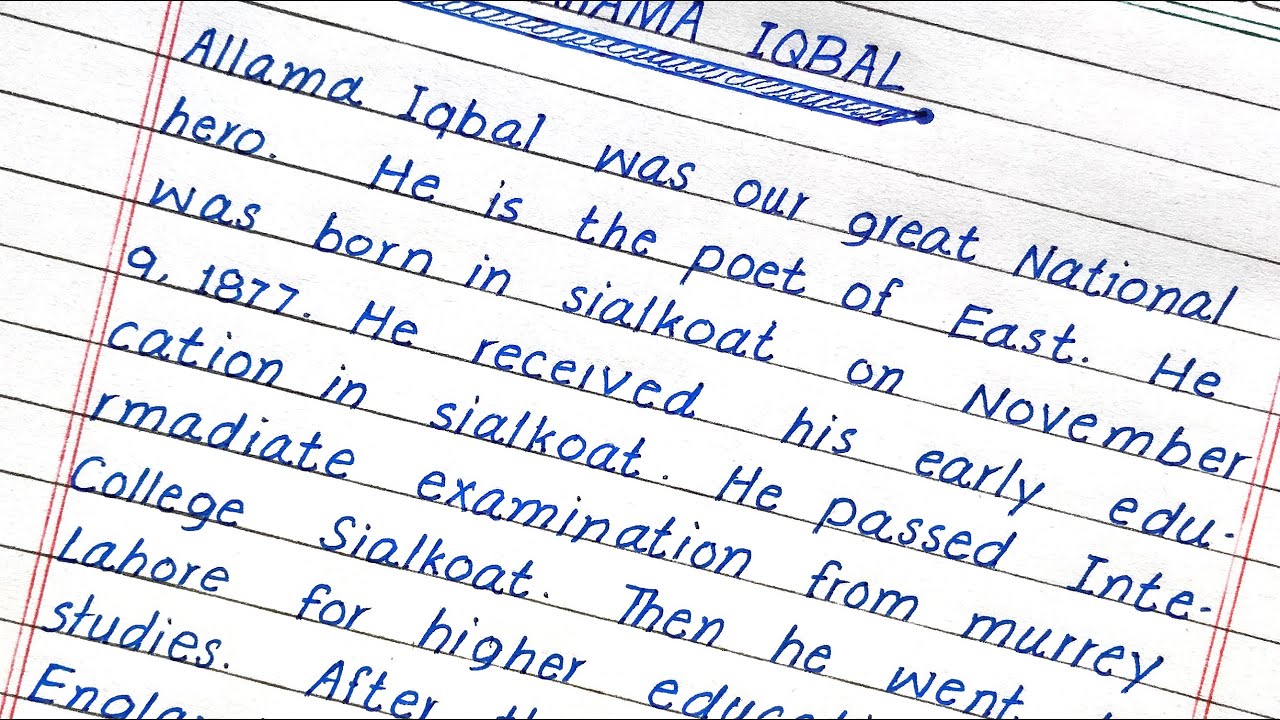 ALLAMA IQBAL
Allama Iqbal was our great National
hero. He is the poet of East. He
was born in sialkoat on November
9, 1877. He received his early edu-
cation in sialkoat. He passed Inte-
rmadiate examination from murrey
College Sialkoat. Then he went
Lahore for higher
studies. After